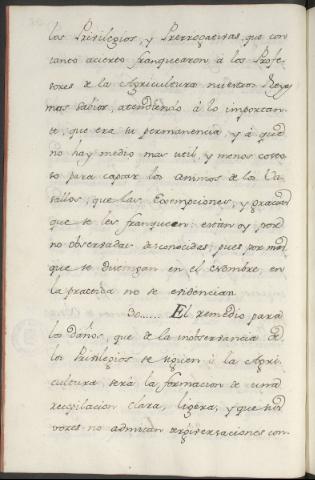 los Privilegios, y Prerrogativas, que con
tanto acierto franquearon à los Profe-
sores de la Agricultura nuestros Reyes
mas sabios, atendiendo à lo importan-
te, que era su permanencia, y à que
no hay medio mas util, y menos costo-
so para captar los animos de los Va-
sallos, que las Exempciones, y gracias
que se les franqueen: estàn oy por
no observadas desconocidas, pues por mas
que se divulgan en el nombre, en
la practica no se evidencian.
30...... El remedio para
los daños, que de la inobservancia de
los Privilegios se siguen à la Agri-
cultura, serà la formacion de una
recopilacion clara, ligera, y que sus
vores no admitan tergiversaciones con-